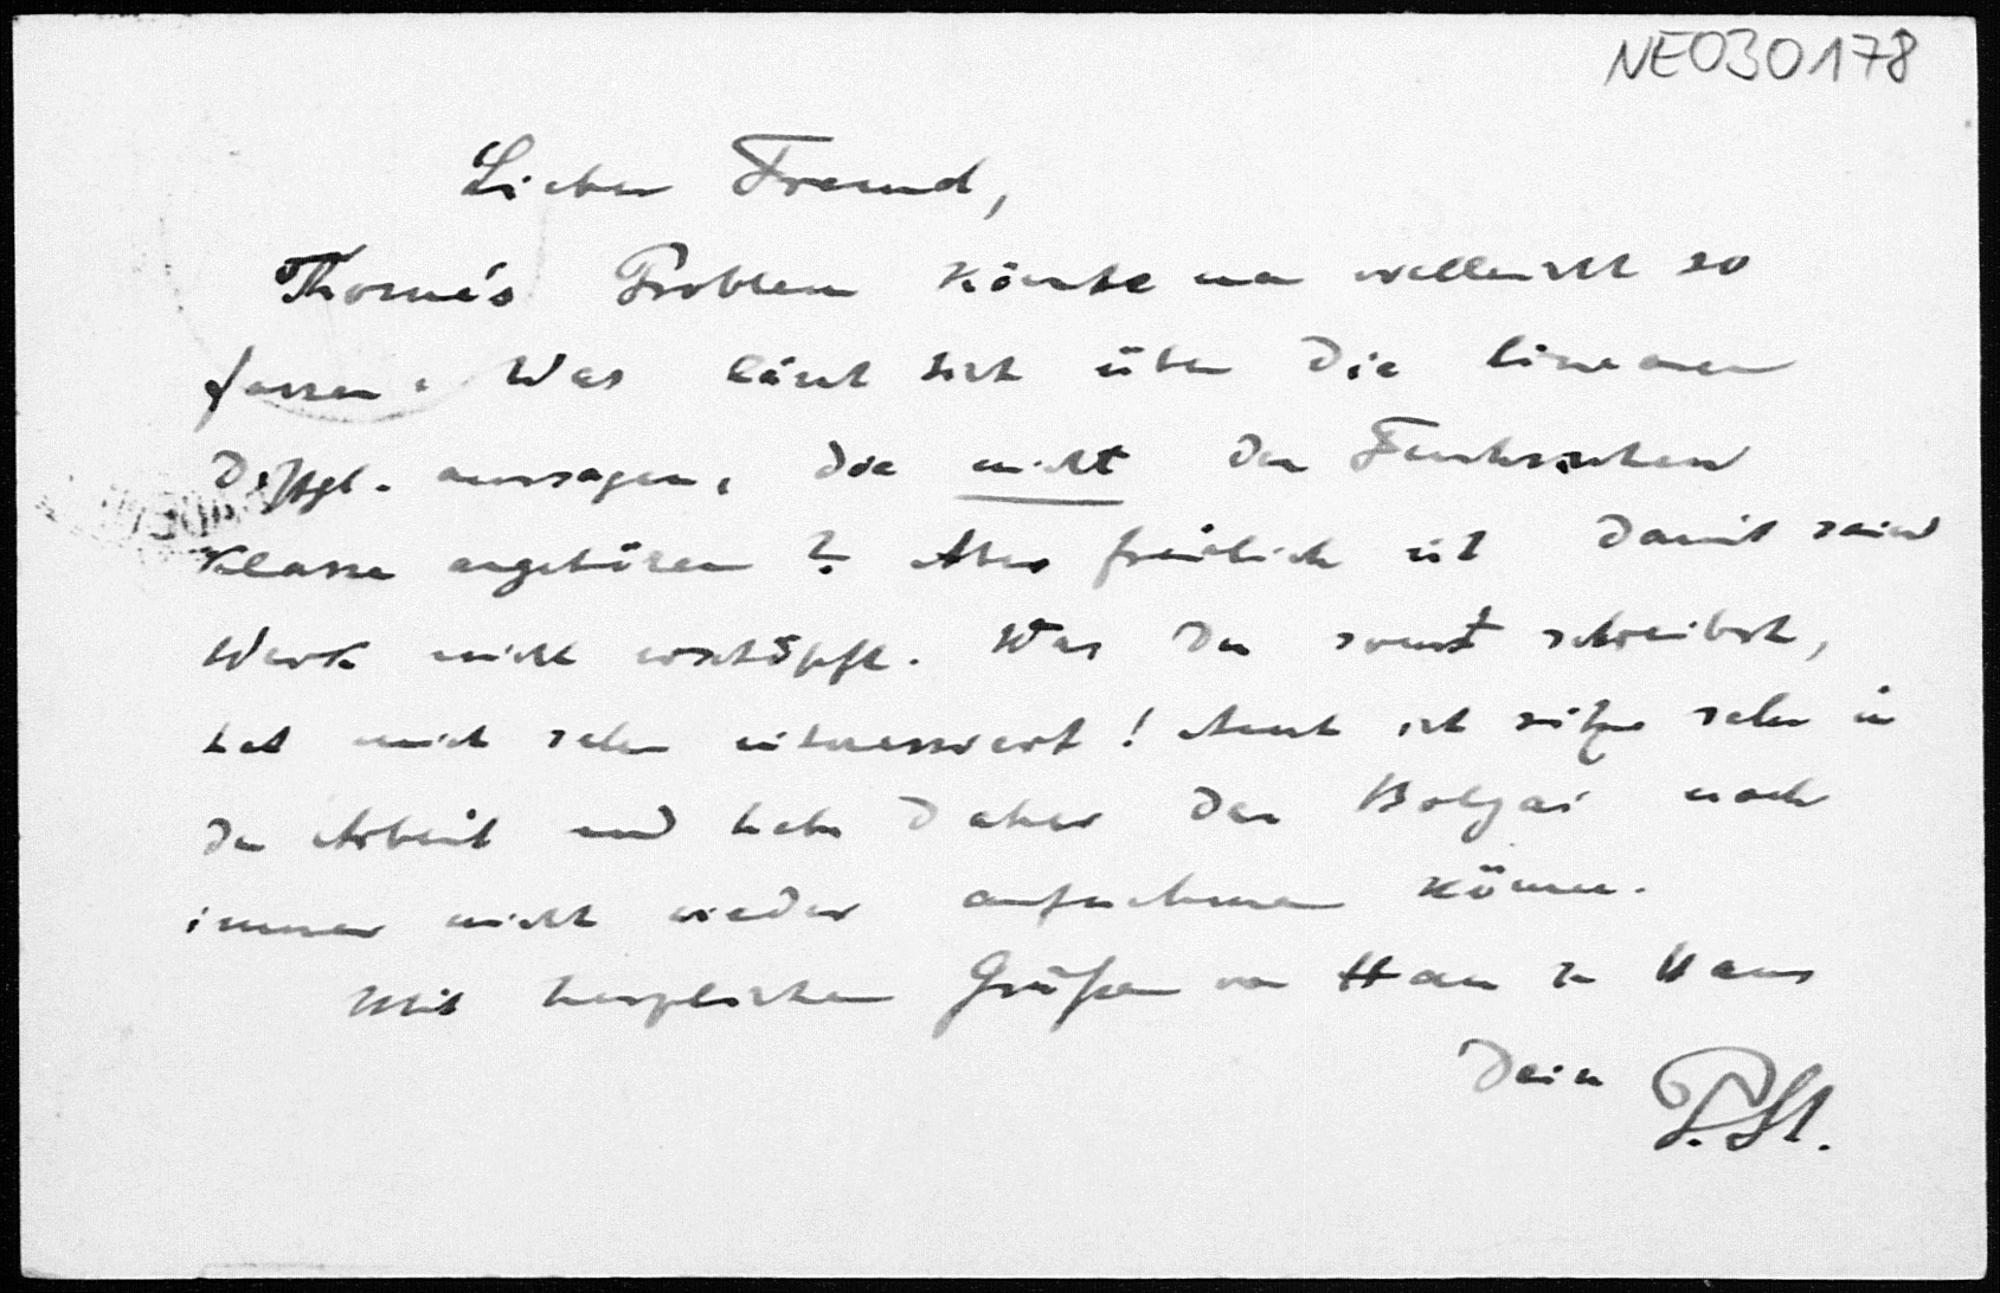 NE030178
Lieber Freund,
Thomé's Problem könnte man vielleicht so
fassen: Was lässt sich über die linearen
Diffgl. aussagen, die nicht der Fuchsischen
Klasse angehören? Aber freilich ist damit sein
Werk nicht erschöpft. Was Du sonst schreibst,
hat mich sehr interessiert! Auch ich sitze sehr in
der Arbeit und habe daher den Bolyai noch
immer nicht wieder aufnehmen können.
Mit herzlichen Grüßen von Haus zu Haus
Dein P. St.